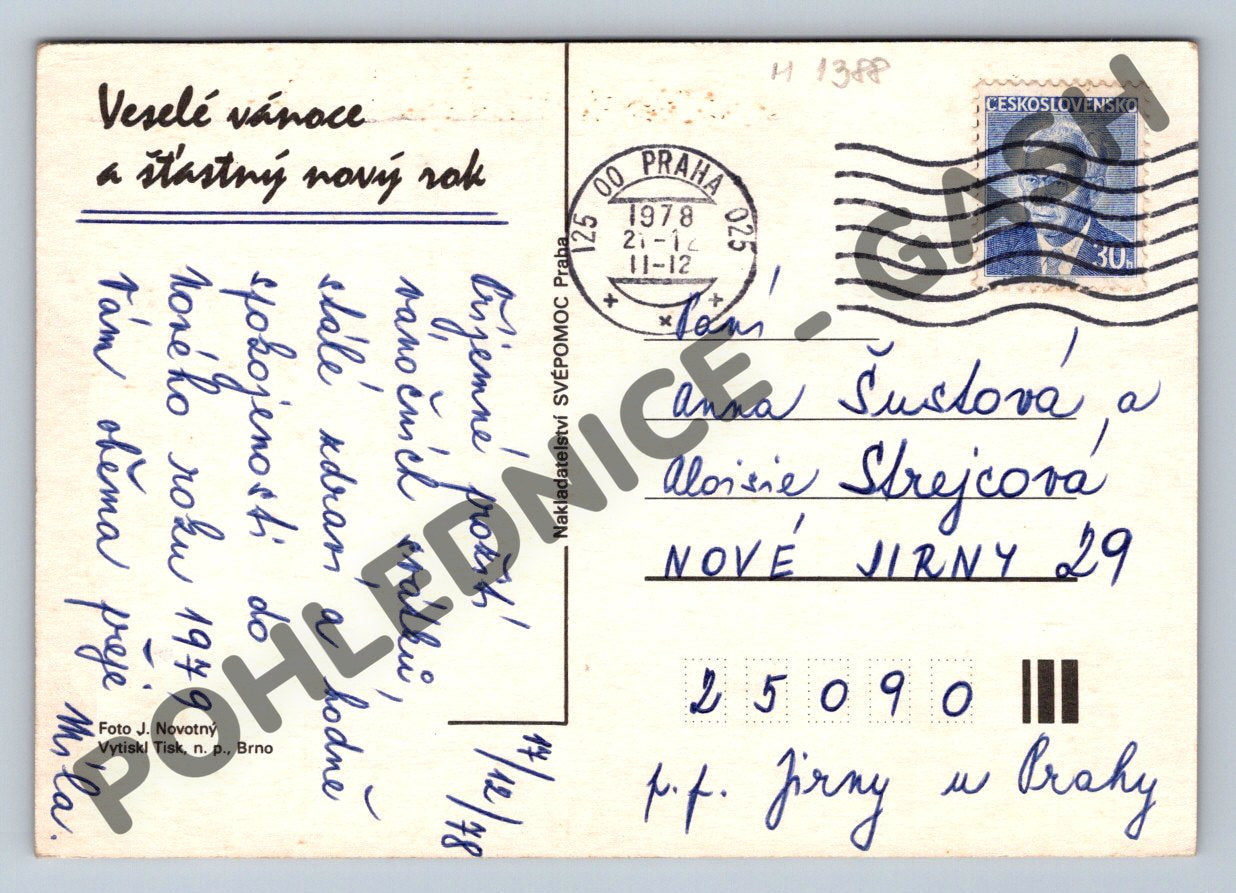 Veselé vánoce
a šťastný nový rok
Příjemné prožití
vánočních svátků,
stálé zdraví a hodně
spokojenosti do
Nového roku 1979
Vám oběma přeje
Míla.
17/12/78
Foto J. Novotný
Vytiskl Tisk, n. p., Brno
Nakladatelství SVÉPOMOC Praha
H 1388
125 00 PRAHA 025
1978
21-12
11-12
ČESKOSLOVENSKO
30h
Paní
Anna Šustová a
Aloisie Strejcová
NOVÉ JIRNY 29
25090
p.p. Jirny u Prahy
POHLEDNICE - GASH